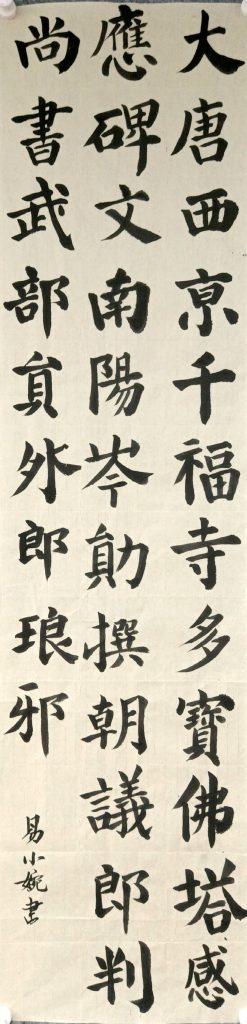 大唐西京千福寺多寶佛塔感
應碑文南陽岑勛撰朝議郎判
尚書武部員外郎琅邪
易小婉書